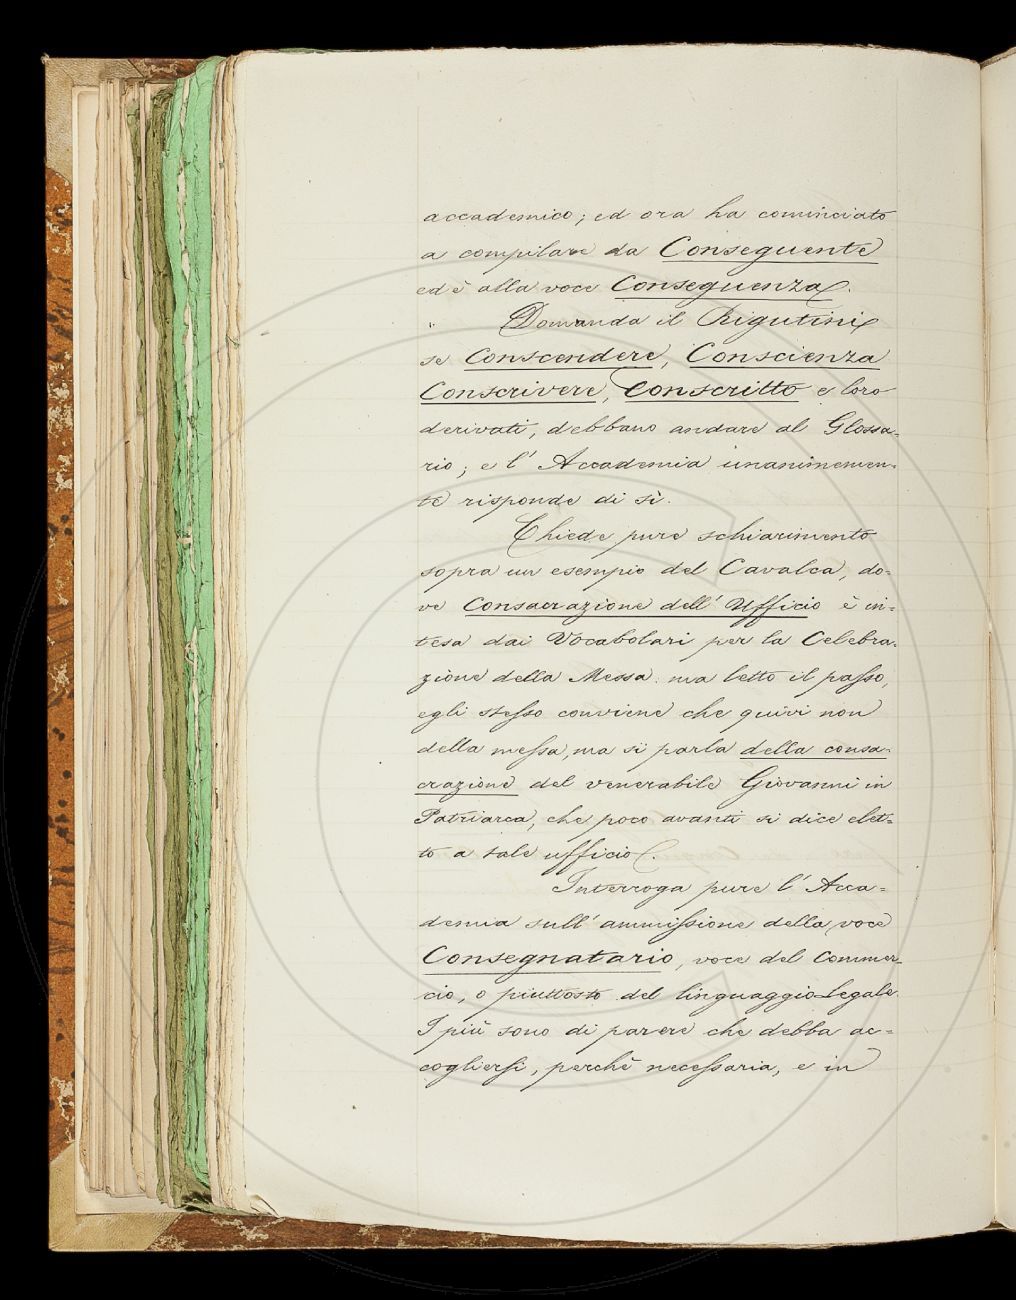 accademico; ed ora ha cominciato
a compilare da Conseguente
ed è alla voce Conseguenza.
Domanda il Rigutini
se Conscendere, Conscienza
Conscrivere, Conscritto e loro
derivati, debbano andare al Glossa=
rio; e l' Accademia unanimemen=
te risponde di sì.
Chiede pure schiarimento
sopra un esempio del Cavalca, do=
ve Consacrazione dell' Ufficio è in=
tesa dai Vocabolari per la Celebra=
zione della Messa: ma letto il passo,
egli stesso conviene che quivi non
della messa, ma si parla della consa=
crazione del venerabile Giovanni in
Patriarca, che poco avanti si dice elet=
to a tale ufficio.
Interroga pure l' Acca=
demia sull' ammissione della voce
Consegnatario, voce del Commer=
cio, o piuttosto del linguaggio legale.
I più sono di parere che debba ac=
cogliersi, perchè necessaria, e in